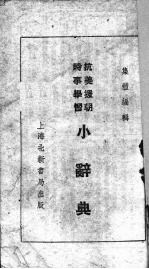 集體編輯
抗美援朝
時事學習
小辭典
上海北新書局出版